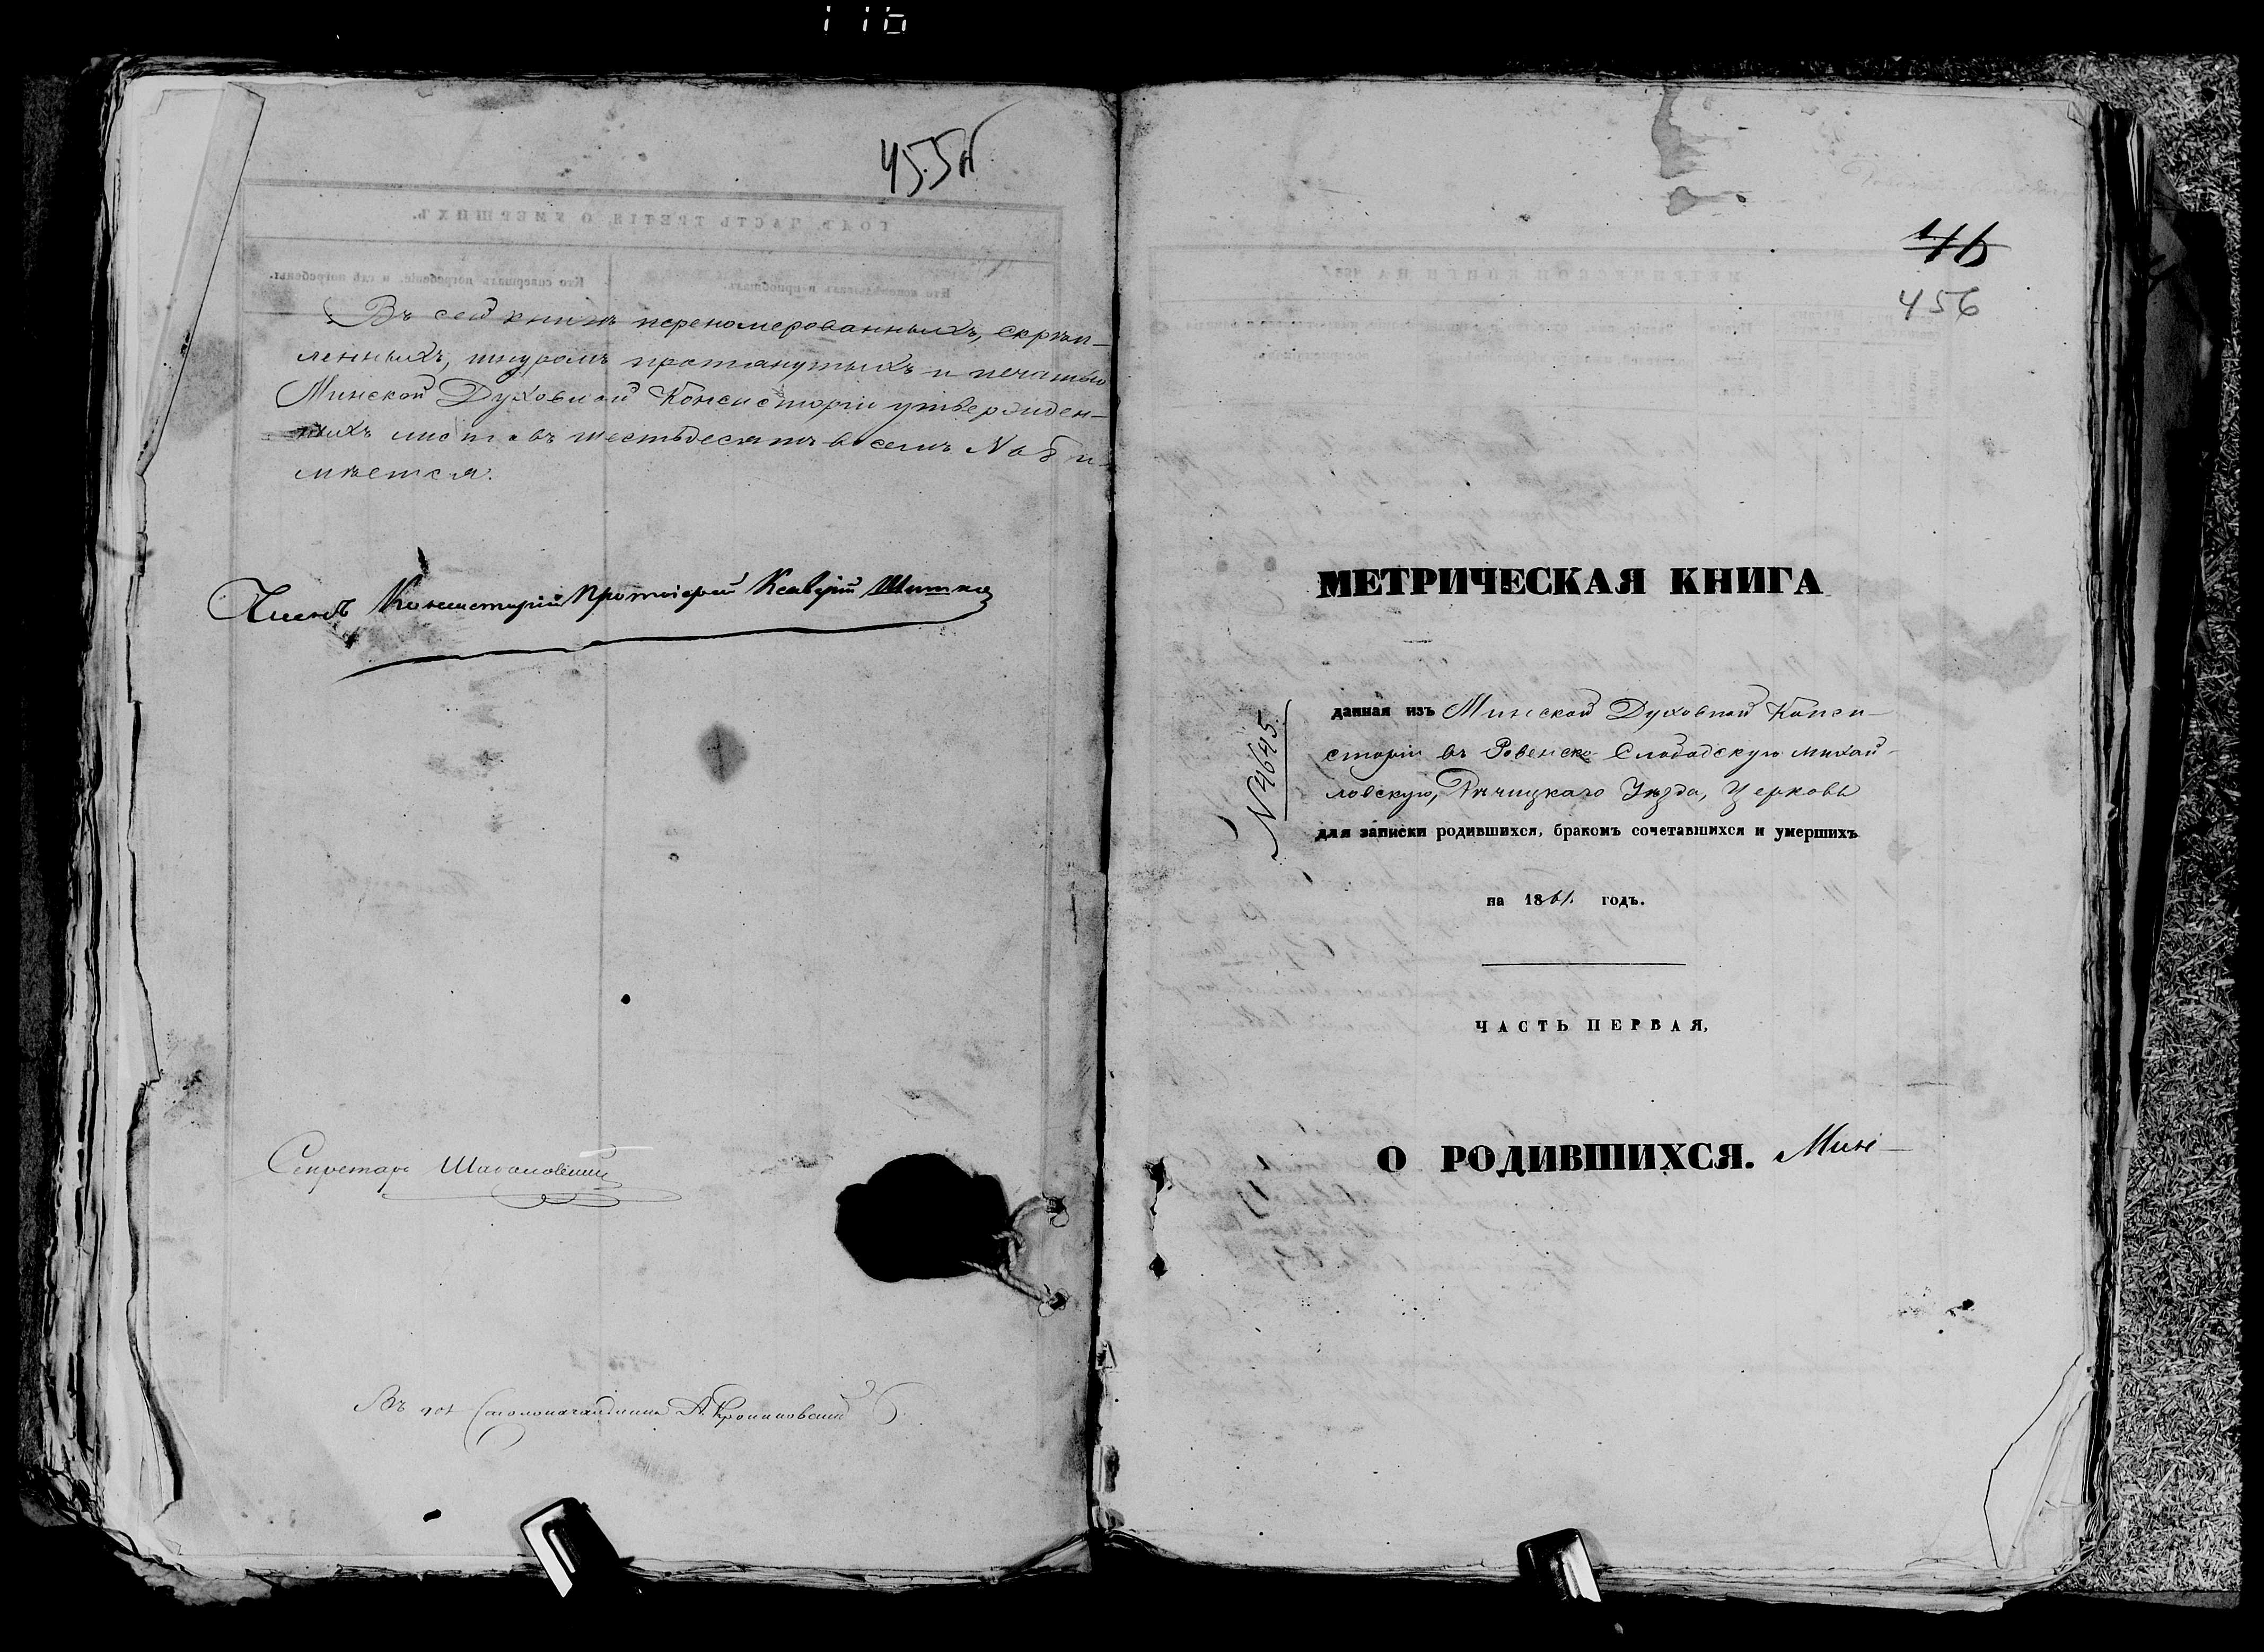 455
Въ сей книгѣ перенумерованныхъ, скрѣп-
ленныхъ, шнуромъ протянутыхъ и печатью
Минской Духовной Консисторіи утвержден-
ныхъ листовъ шестьдесятъ восемь № 68 и-
мѣется.
Членъ Консисторіи Протоіерей
Секретарь
Въ дол Столоначальника
46
456
МЕТРИЧЕСКАЯ КНИГА
данная изъ Минской Духовной Конси-
сторіи въ Ровенско Слободскую Михай-
ловскую, Рѣчицкаго Уѣзда, Церковь
№ 4645.
для записки родившихся, бракомъ сочетавшихся и умершихъ
на 1861. годъ.
ЧАСТЬ ПЕРВАЯ,
О РОДИВШИХСЯ. Мин-